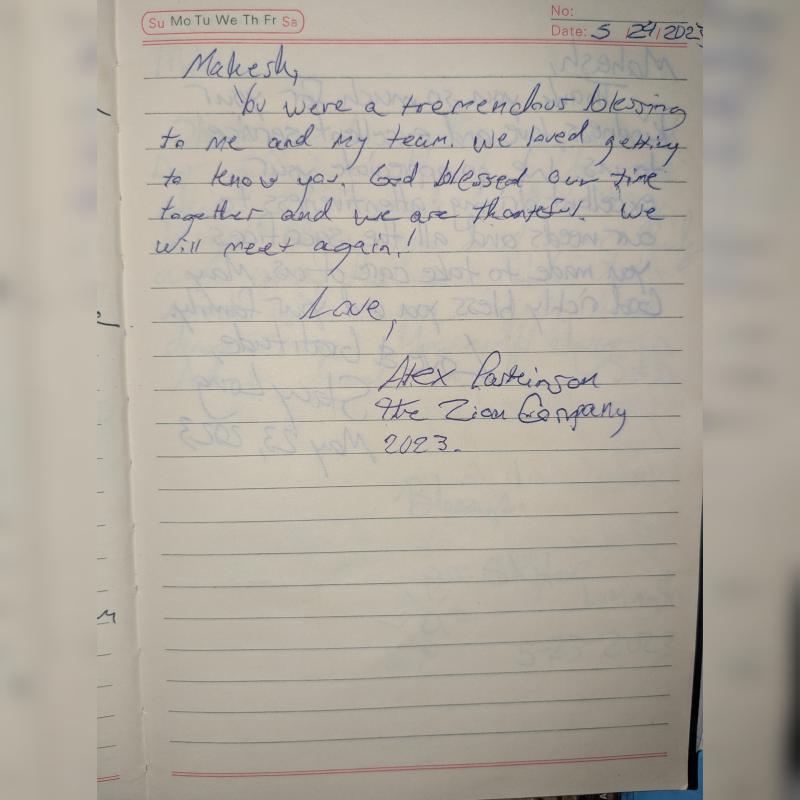 Su Mo Tu We Th Fr Sa
No:
Date: 5 24 2023
Mahesh,
You were a tremendous blessing
to me and my team. We loved getting
to know you. God blessed our time
together and we are thankful. We
will meet again!
Love,
Alex Parkinson
The Zion Company
2023.